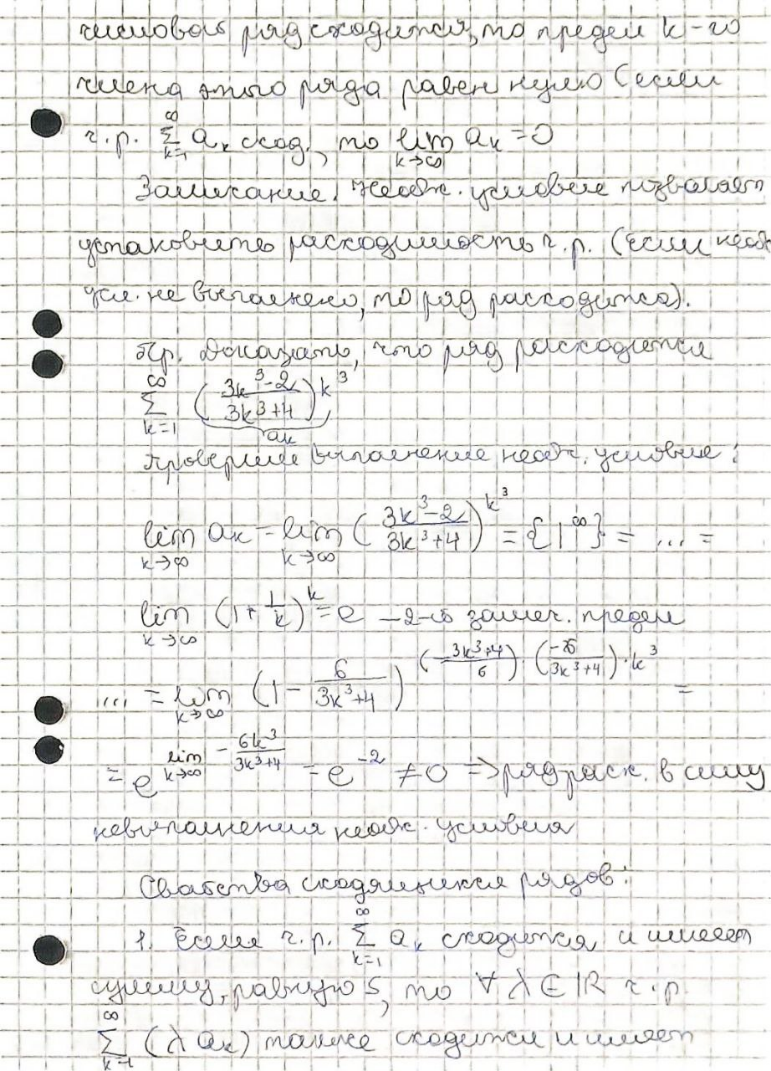 числовой ряд сходится, то предел k-го
члена этого ряда равен нулю (если
ч.р. \sum_{k=1}^{\infty} a_k сход., то \lim_{k→∞} a_k = 0
Замечание. Необх. условие позволяет
установить расходимость ч.р. (если необх
усл. не выполнено, то ряд расходится).
Пр. Доказать, что ряд расходится
\sum_{k=1}^{\infty} \underbrace{(\frac{3k^3-2}{3k^3+4})^{k^3}}_{a_k}
Проверим выполнение необх. условие:
\lim_{k→∞} a_k = \lim_{k→∞} (\frac{3k^3-2}{3k^3+4})^{k^3} = {1^∞} = ... =
\lim_{k→∞} (1+\frac{1}{k})^k = e – 2-й замеч. предел
... = \lim_{k→∞} (1 - \frac{6}{3k^3+4})^{(-\frac{3k^3+4}{6}) · (\frac{-6}{3k^3+4}) · k^3} =
= e^{\lim_{k→∞} -\frac{6k^3}{3k^3+4}} = e^{-2} ≠ 0 => ряд расх. в силу
невыполнения необх. условия
Свойства сходящихся рядов:
1. Если ч.р. \sum_{k=1}^{\infty} a_k сходится и имеет
сумму, равную S, то ∀ λ ∈ ℝ ч.р.
\sum_{k=1}^{\infty} (λ a_k) также сходится и имеет